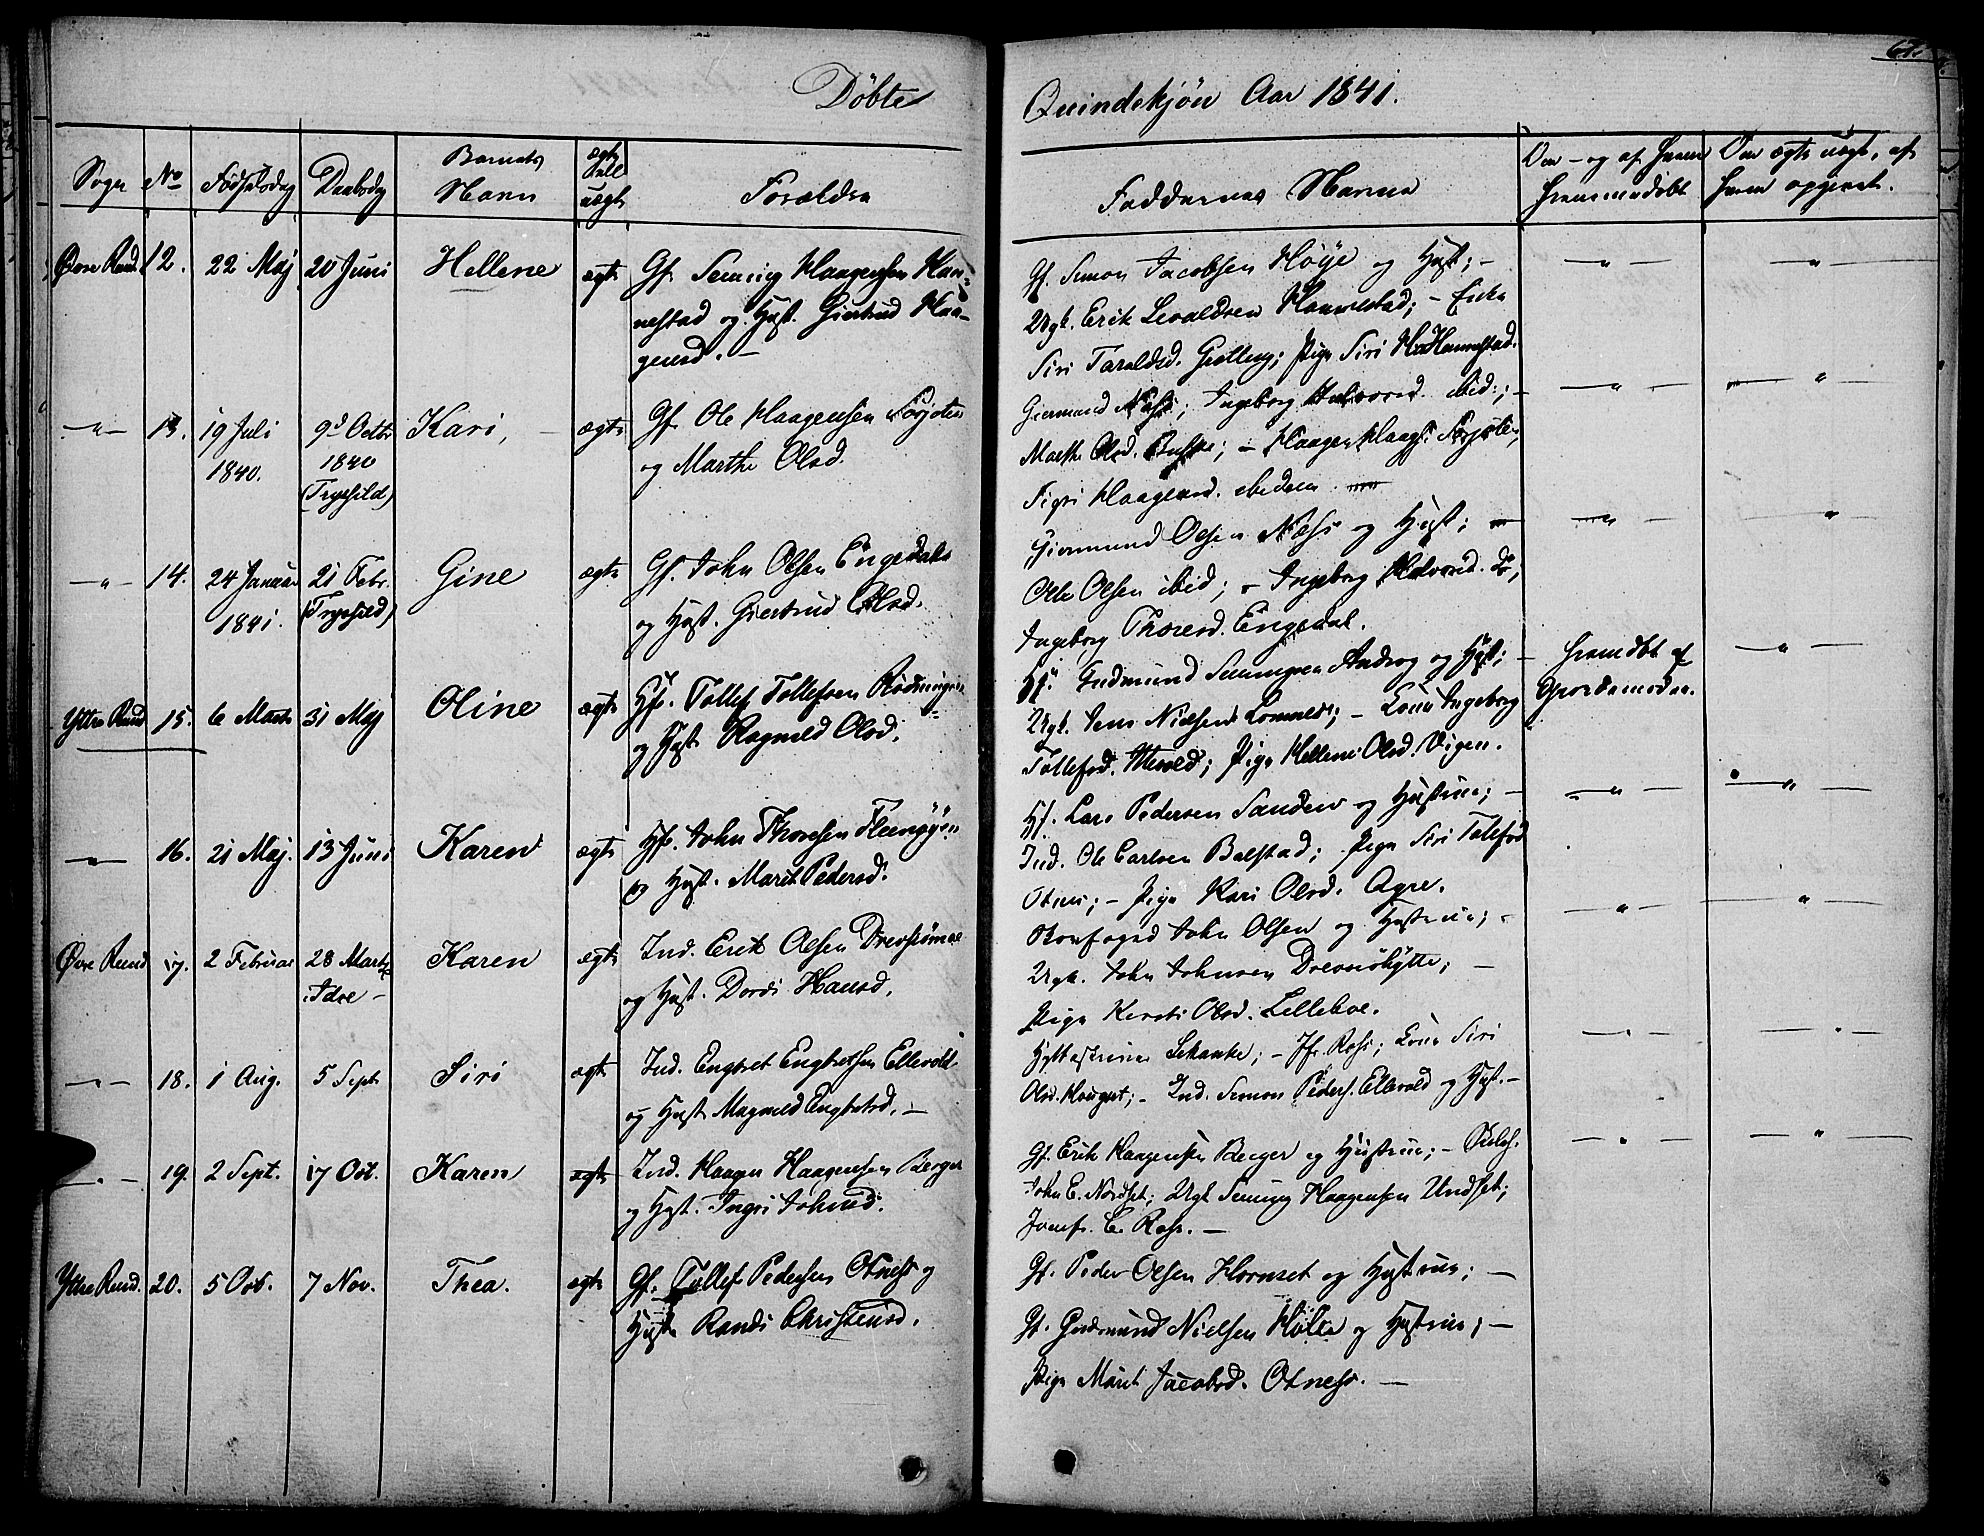 67.
Døbte
Quindekjøn Aar 1841.
Sogn No Fødselsdag Daabsdag Barnets Navn ægte eller uægte Forældre
Faddernes Navne
Om - og af hvem hjemmedøbt
Om ægte uægt. af hvem opgivet.
Øvre Rend. 12. 22 Maj 20 Juni Hellene ægte Gf. Semmig Haagensen Han-
nestad og Hust. Giertrud Haa-
gensd. -
Gf. Simon Jacobsen Høye og Hust; -
Ungk. Erik Hannestad; - Enke
Siri Taraldsd. Pige Siri Hannestad.
-"- 13. 19 Juli 1840. 9d Octbr 1840 (Trysild) Kari, ægte Gf. Ole Haagensen
og Marthe Olsd.
Giermund Næss; Ingeborg Halvorsd. ibid:; -
Marthe Olsd. - Haagen Haags.
Sigri Haagensd. ibidem
-"- 14. 24 Januar 1841. 21 Febr. (Trysild) Gine ægte Gf. John Olsen Engerdal
og Hust. Giertrud Olsd.
Giermund Olsen Næss og Hust; -
Ole Olsen ibid; - Ingeborg Halvorsd. do,
Ingeborg Thoresd. Engerdal.
Yttre Rend. 15. 6 Marts 31 Maj Oline ægte Hf. Tollef Tollefsen
og Hust Ragnild Olsd.
Gudmund Semmingsen Androg og Hust; -
Ungk. Jens Nielsen - Kone Ingeborg
Tollefsd. Pige Hellene Olsd. Vigen.
hjemdbt af Gjordemoder.
-"- 16. 21 Maj. 13 Juni Karen ægte Hf. John Thoresen
og Hust. Marit Pedersd.
Hf. Lars Pedersen Sanden og Hustrue; -
Ind. Ole Carlsen Balstad; Pige Siri Tollefsd
Otnes; - Pige Kari Olsd. Agre.
Øvre Rend 17. 2 Februar 28 Marts Idre - Karen ægte Ind. Erik Olsen
og Hust. Dordi Hansd.
John Olsen og Hustrue; -
Ungk. John Johnsen Drevsiøhytte; -
Pige Kersti Olsd. Lilleboe.
-"- 18. 1 Aug. 5 Sept Siri ægte Ind. Engbret Engbretsen Ellevold
og Hust Magnild Engbretsd. -
- Jfr. Ross; Kone Siri
Olsd. - Ind. Simon Peders. Ellevold og Hust. -
-"- 19. 2 Sept. 17 Oct. Karen ægte Ind. Haagen Haagensen Berger
og Hust. Ingri Johnsd.
Gf. Erik Haagensen Berger og Hustrue; -
John E. Nordset; Ungk Semmig Haagensen Undset;
Jomfr. C. Ross. -
Yttre Rend. 20. 5 Oct. 7 Nov. Thea. ægte Gf. Tollef Pedersen Otness og
Hust Randi Christensd.
Gf. Peder Olsen Hornset og Hustrue; -
Gf. Gudmund Nielsen Holte og Hustrue; -
Pige Marit Jacobsd. Otness. -